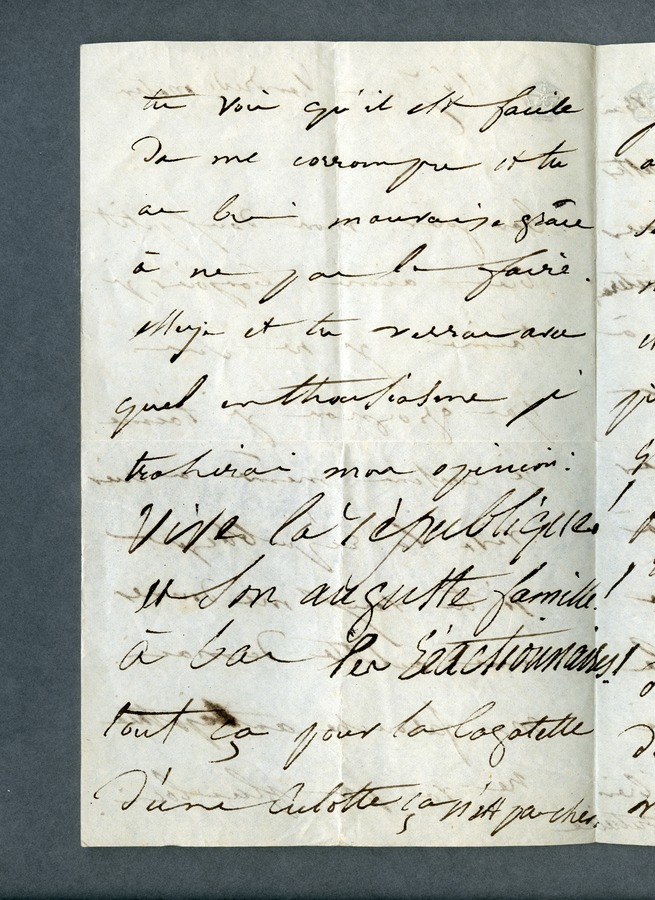 tu vois qu'il est facile
De me corrompre et tu
as bien mauvaise grâce
à ne pas le faire.
et tu verras avec
quel enthousiasme j'
trahirai mon opinion:
Vive la république!
et son auguste famille!
à bas les Réactionnaires!
tout ça pour la bagatelle
D'une culotte ça n'est pas cher.